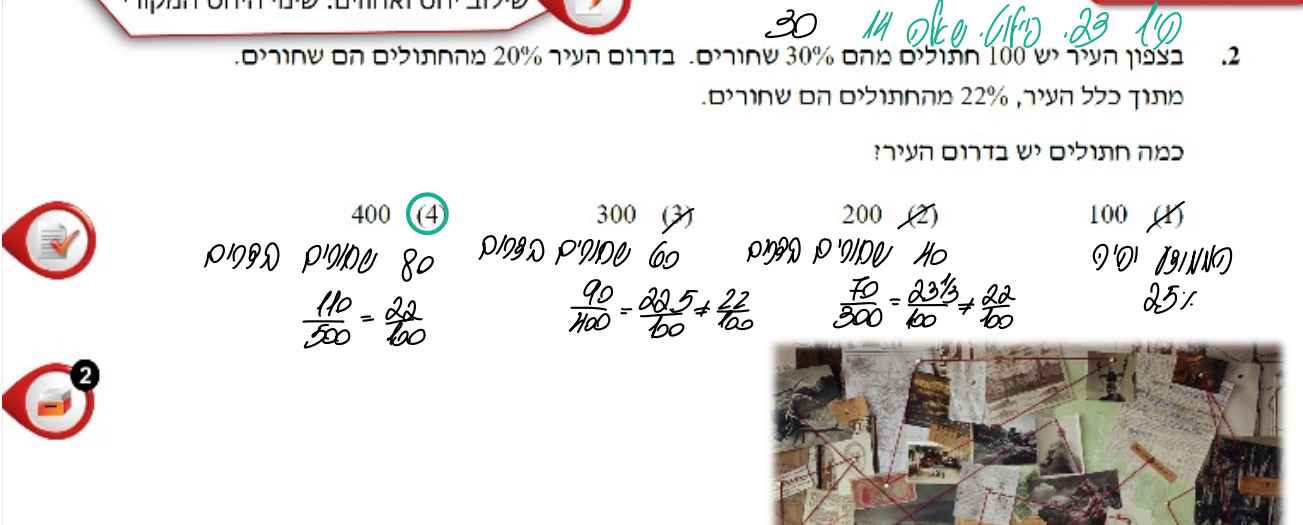 שילוב יחס ואחוזים: שינוי היחס המקורי
30
23. שאלה 14
2. בצפון העיר יש 100 חתולים מהם 30% שחורים. בדרום העיר 20% מהחתולים הם שחורים.
מתוך כלל העיר, 22% מהחתולים הם שחורים.
כמה חתולים יש בדרום העיר?
(1) 100 (2) 200 (3) 300 (4) 400
הממוצע יהיה
25%
40 שחורים בדרום
70/300 = 23⅓/100 ≠ 22/100
60 שחורים בדרום
90/400 = 22.5/100 ≠ 22/100
80 שחורים בדרום
110/500 = 22/100
2